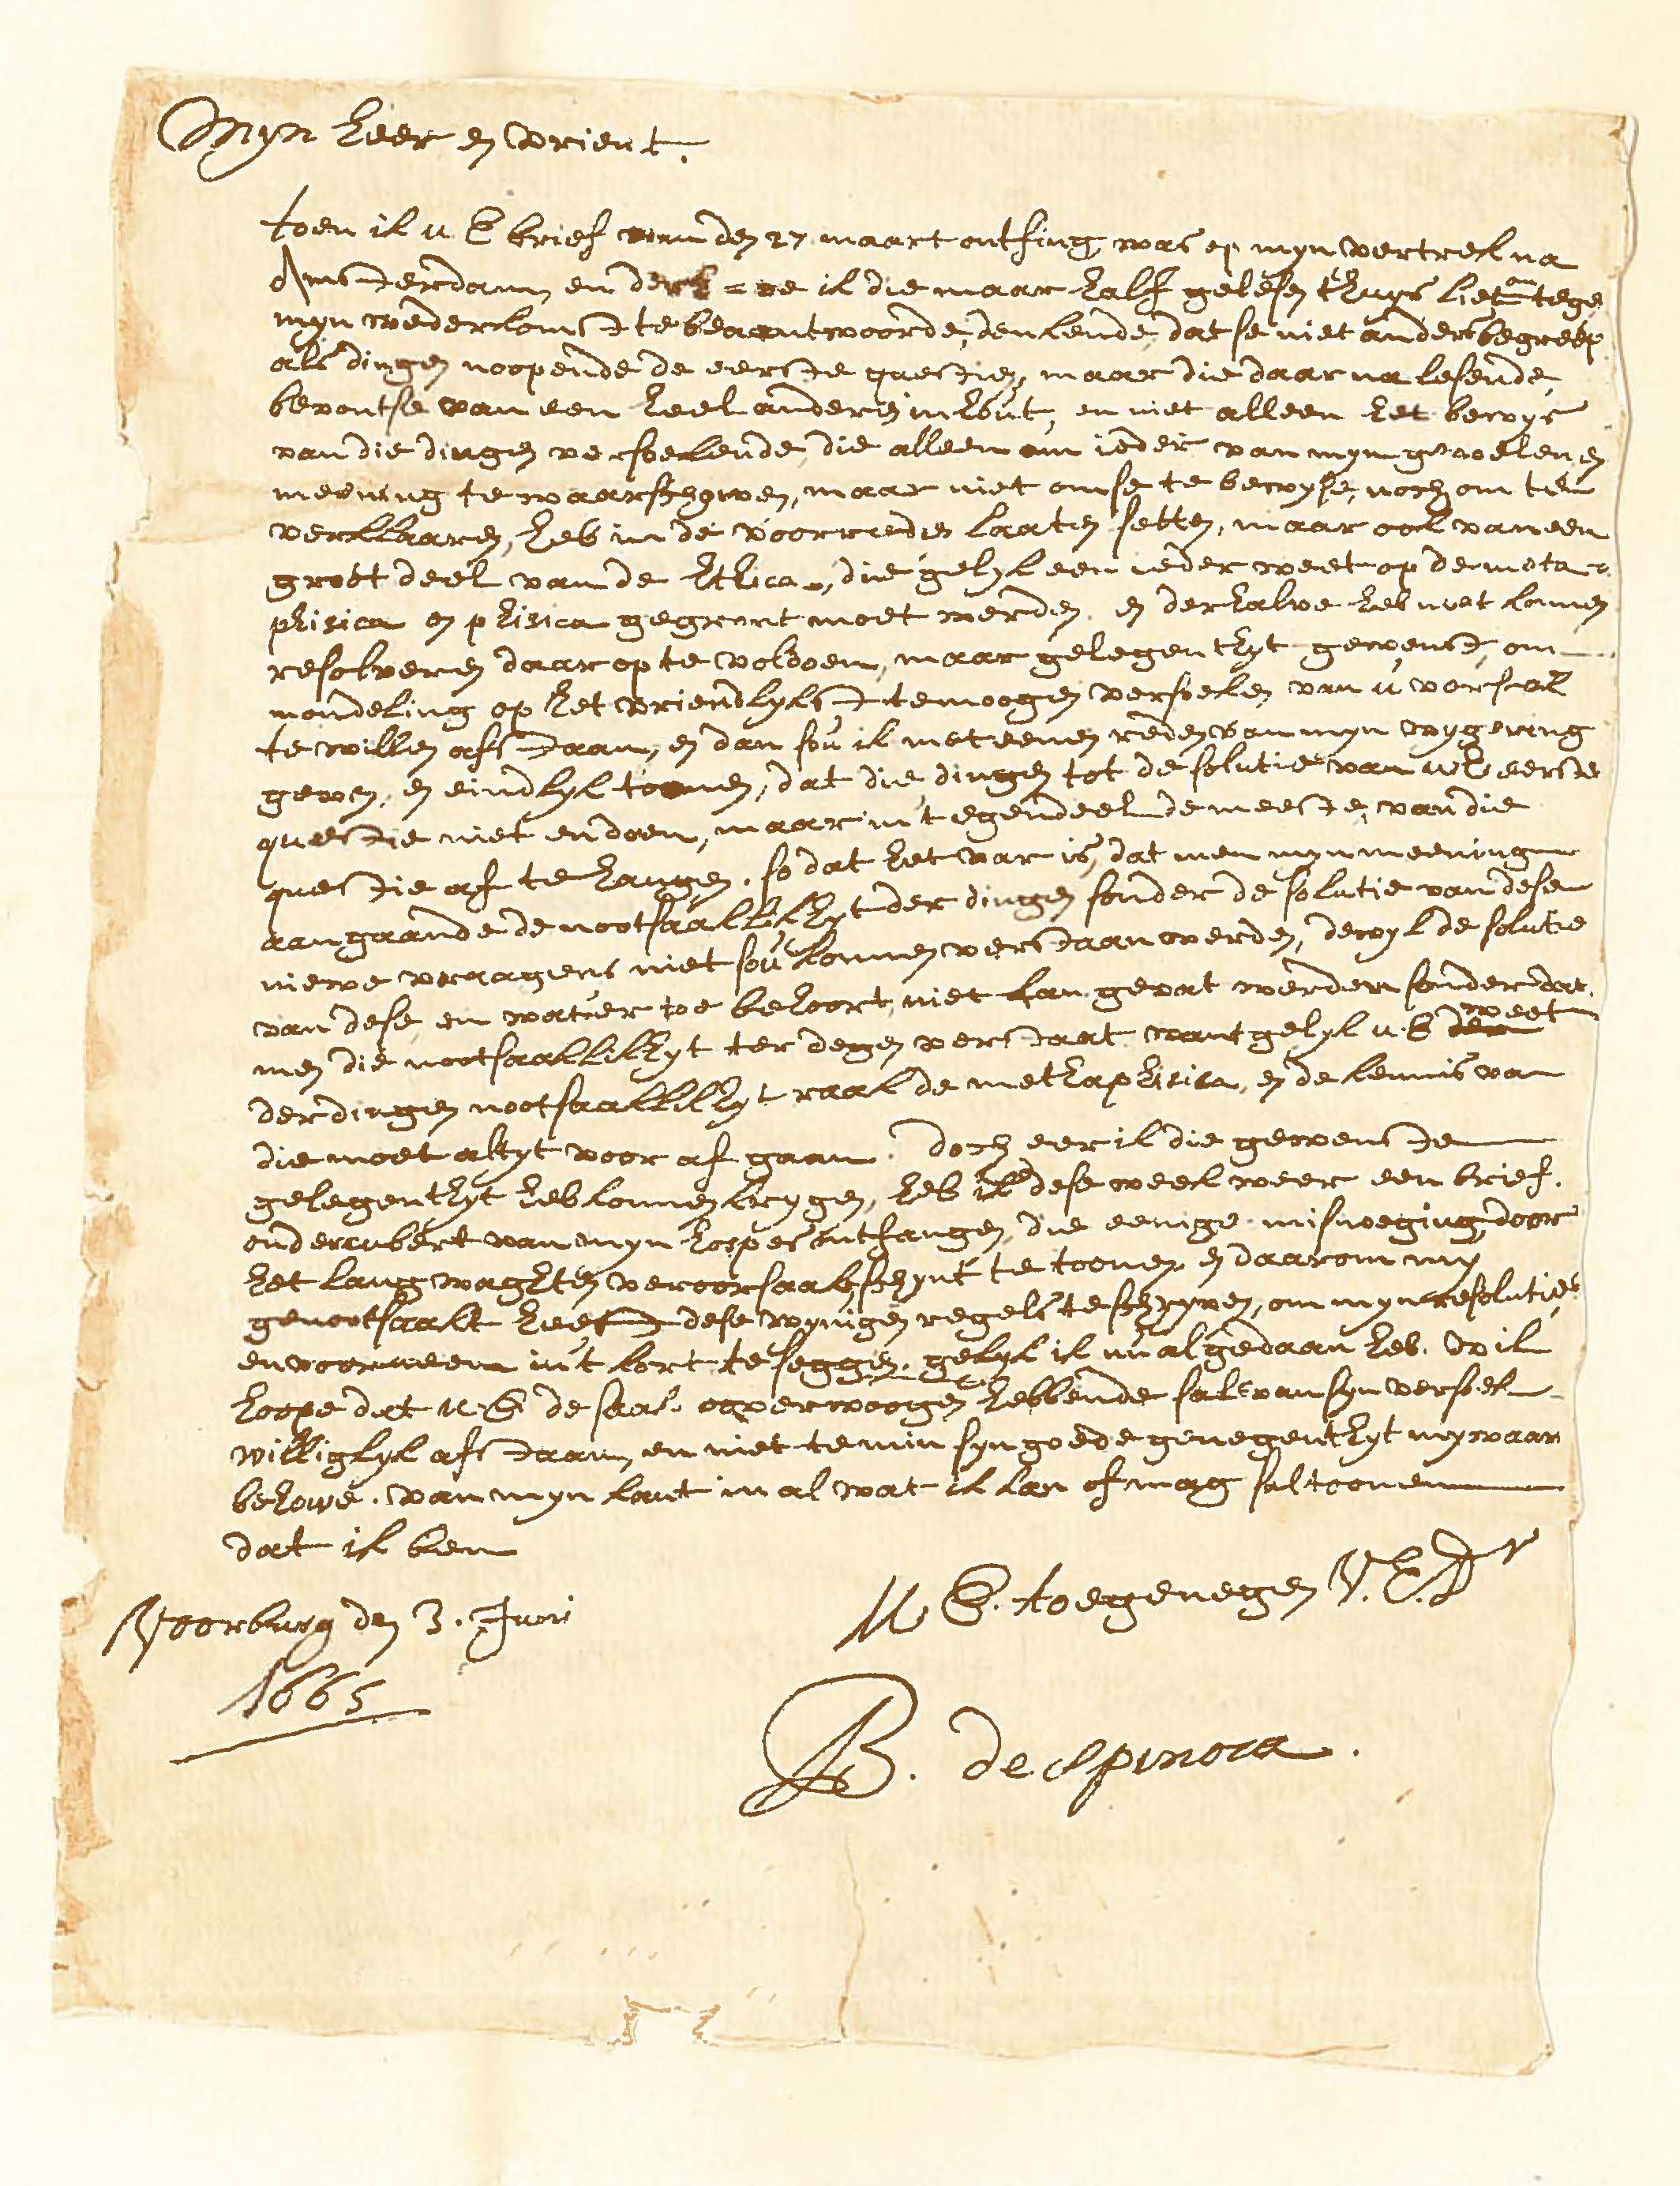 Myn heer en vrient.
toen ik u E brief van den 27 maart ontfing, was op myn vertrek na
Amsterdam, en derhalve ik die maar half gelesen thuys liet om tege
myn wederkomst te beantwoorde, denkende, dat se niet anders begreep
als dingen noopende de eerste questien, maar die daar na lesende
bevont se van een heel anderen inhout, en niet alleen het bewys
van die dingen versoekende, die alleen om ieder van myn gevoelen en
meening te waarschowen, maar niet om se te bewyse, noch om te
verklaaren, heb in de voorreden laaten setten, maar ook van een
groot deel van de Ethica, die gelyk een ieder weet op de meta
phisica en phisica gegront moet werden. en derhalve heb niet konnen
resolveren daar op te voldoen, maar gelegenthyt gewenst, om
mondeling op het vriendlykst te moogen versoeken van u versoek
te willen afstaan, en dan sou ik met eenen reden van myn wygering
geven, en eindlyk toonen, dat die dingen tot de solutie van u E eerste
questie niet en doen, maar in 't egendeel de meeste, van die
questie af te hangen. so dat het var is, dat men myn meening
aangaande de nootsaaklikhyt der dingen sonder de solutie van dese
niewe vraagens niet sou konnen verstaan werden, dewyl de solutie
van dese, en wat'er toe behoort, niet kan gevat werden sonder dat
men die nootsaaklikhyt ter degen verstaat. want gelyk u E weet
der dingen nootsaaklikhyt raakt de methaphisica, en de kennis van
die moet altyt voor af gaan. doch eer ik die gewenste
gelegenthyt heb konnen krygen, heb ik dese week weer een brief
onder cubert van myn hospes ontfangen, die eenige misnoeging, door
het lang waghten veroorsaakt, schynt te toonen, en daarom my
genootsaakt heeft dese wynigen regels te schryven, om myn resolutie
en voorneem in't kort te seggen. gelyk ik nu al gedaan heb. wil
hoope dat u E de saak overwoogen hebbende sal van syn versoek
williglyk afstaan, en niet te min syn goede genegenthyt my waar
behowe. van myn kant in al wat ik kan of mag sal toonen
dat ik ben
U E. toegenegen V. E. Dr
Voorburg den 3. Juni
1665
B. de Spinoza.